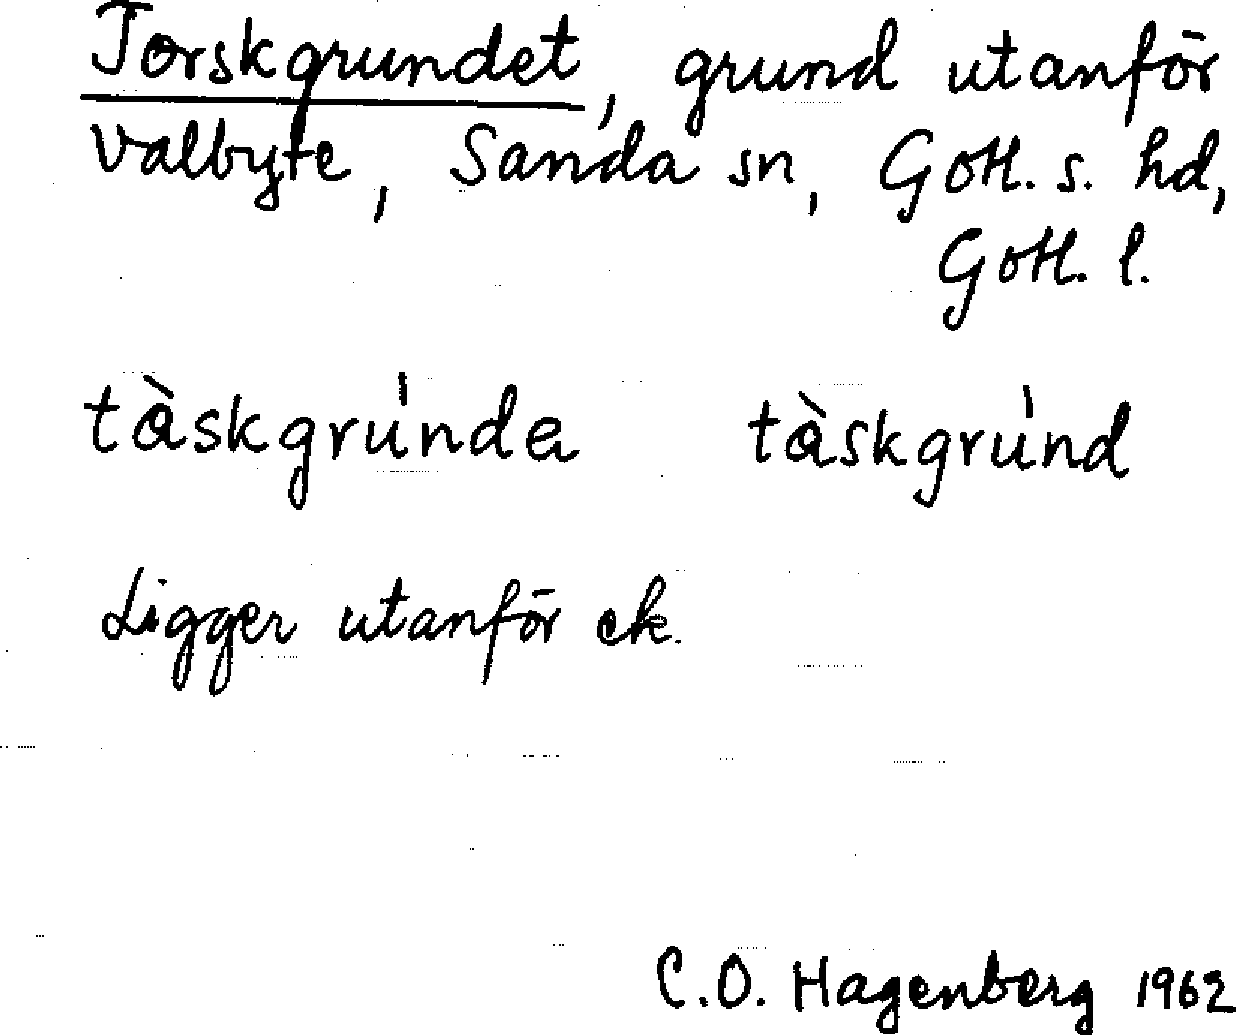 Torskgrundet, grund utanför
Valbyte, Sanda sn, Gotl. s. hd,
Gotl. l.
tàskgru̍nda tàskgru̍nd
Ligger utanför ek.
C.O. Hagenberg 1962